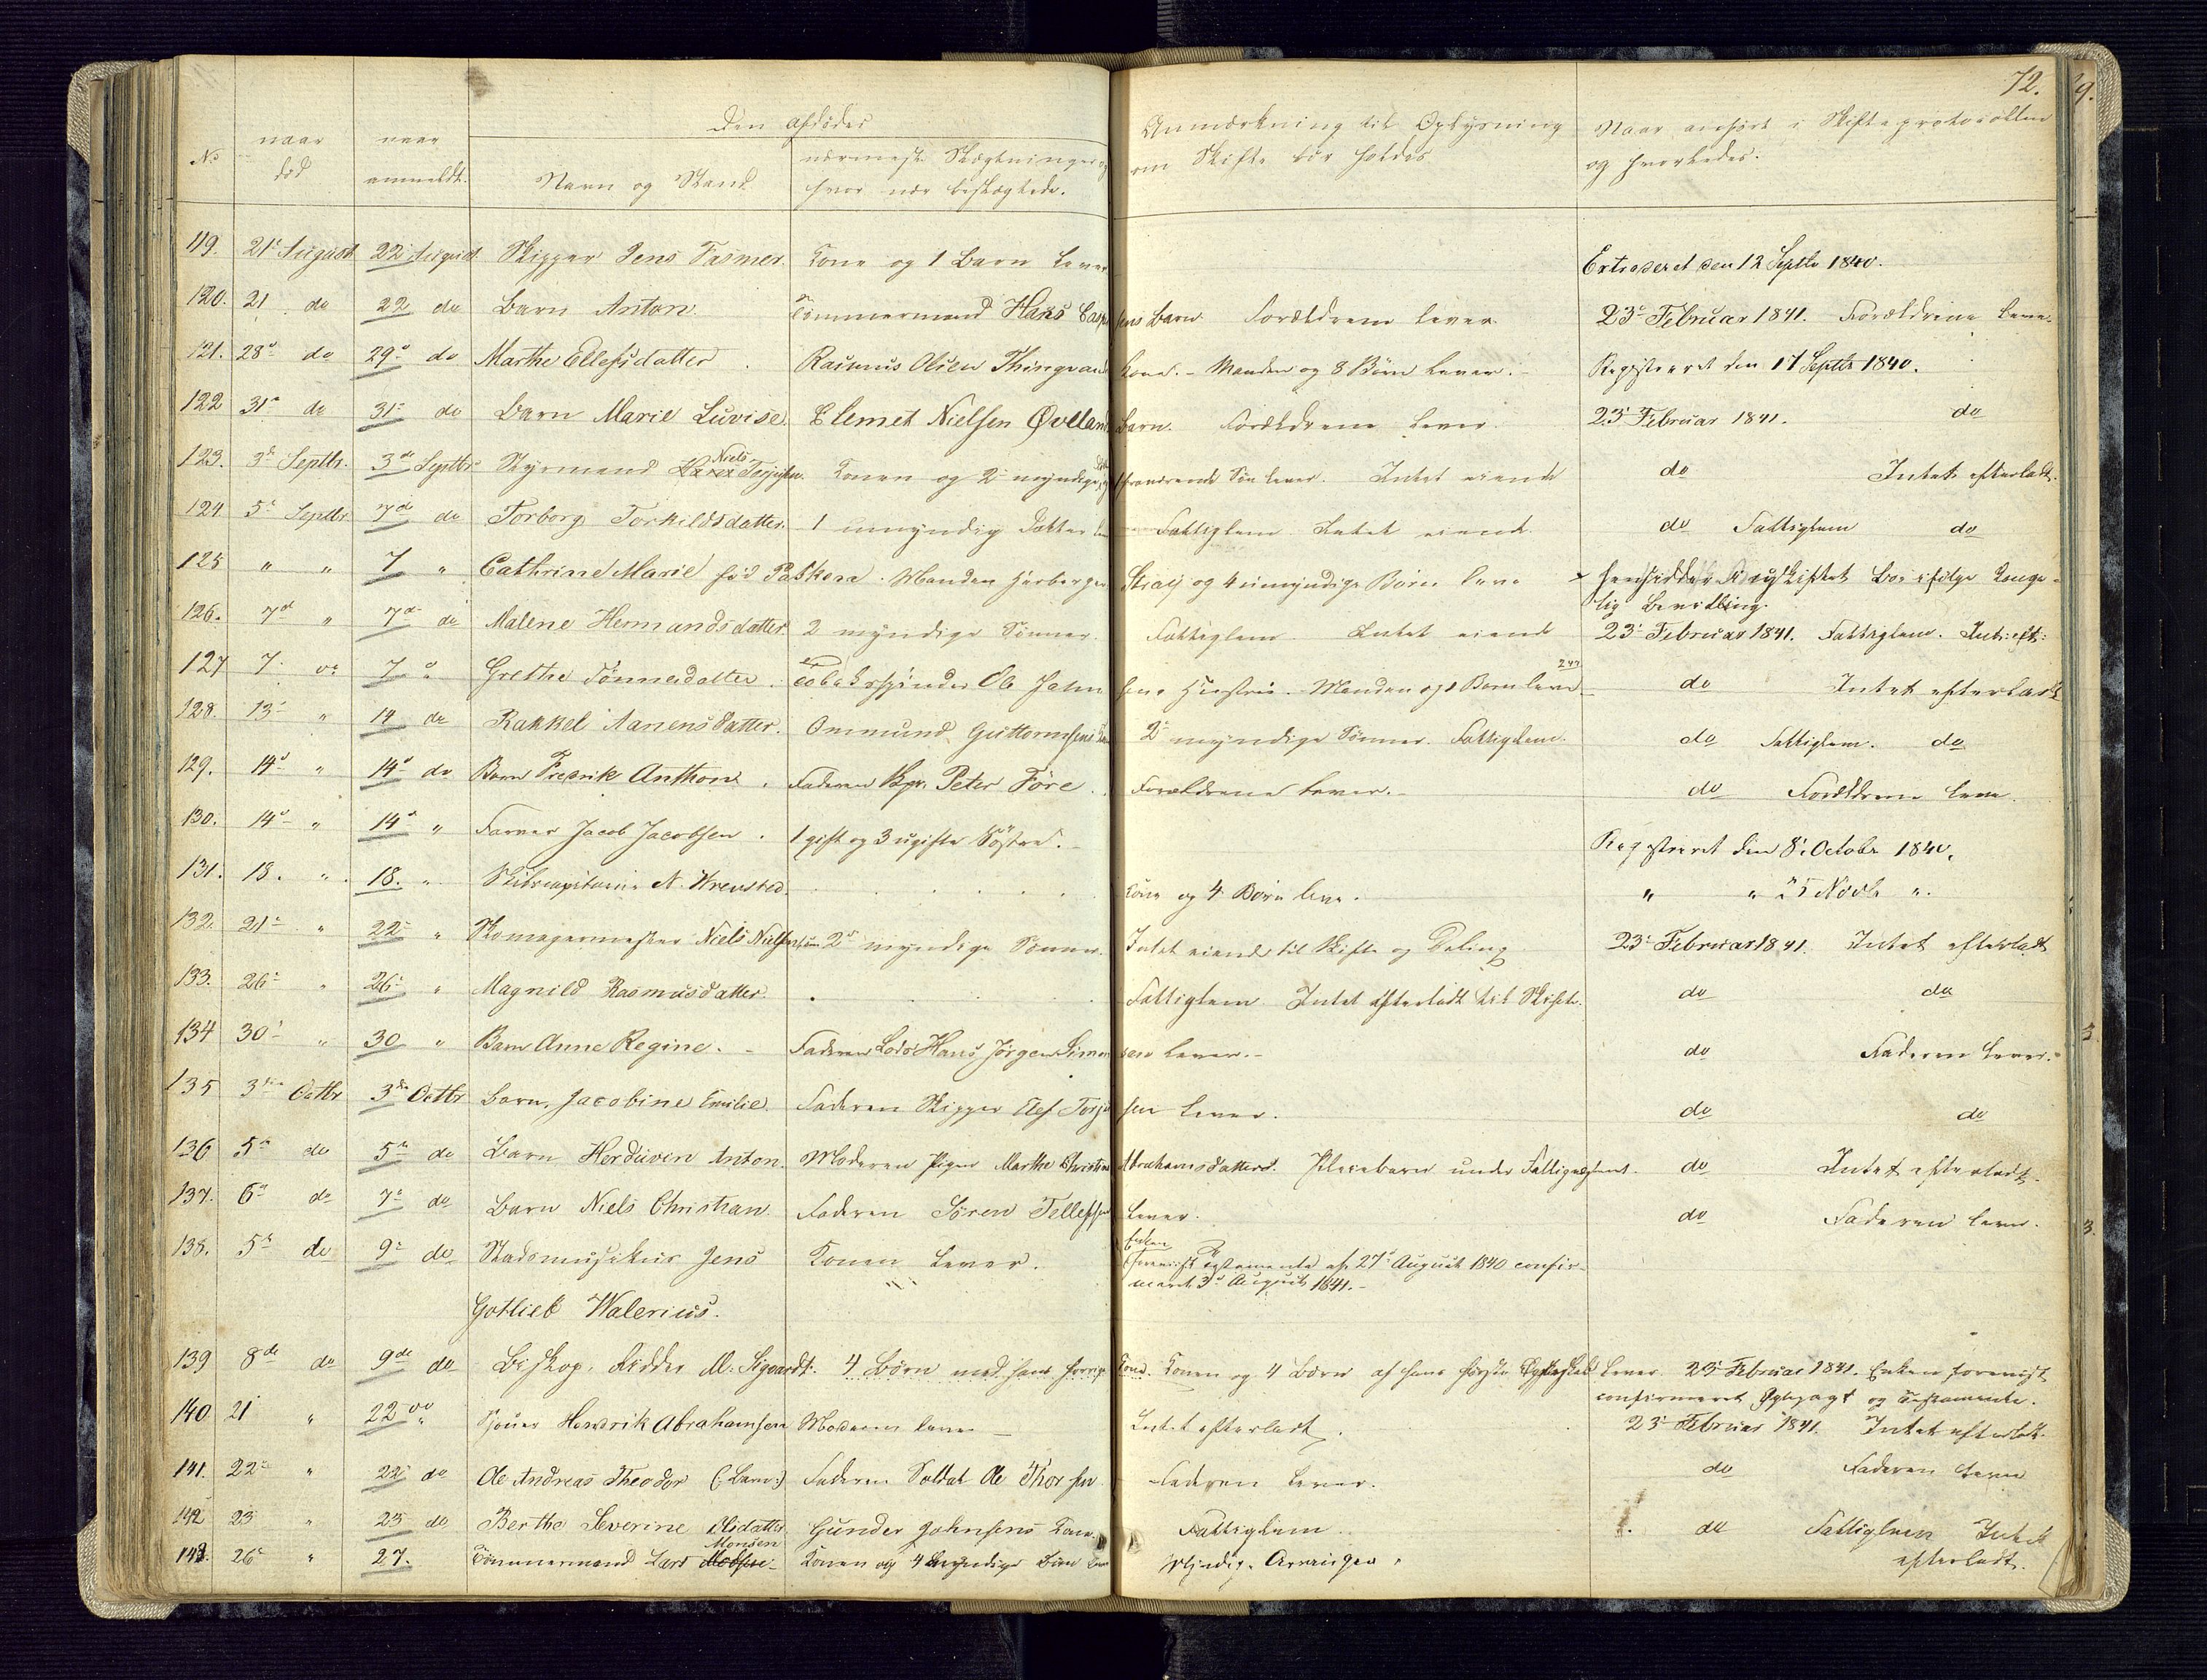 72.
No
naar død
naar anmeldt.
Den afdødes
Navn og Stand
nærmeste Slægtninger og hvor nær beslægtede.
Anmærkning til Oplysning om Skifte bør holdes
Naar anført i Skifteprotocollen og hvorledes.
119. 21 August 22 August Skipper Jens Fasmer Kone og 1 Barn lever Extraderet den 12 Septbr 1840.
120. 21 do 22 do Barn Anton Tømmermand Hans Barn Forældrene lever 23 Februar 1841. Forældrene lever
121. 28 do 29 do Marthe Ellefsdatter Rasmus Olsen Kone. - Manden og 8 Børn lever. - Registeret den 17 Septbr 1840.
122 31 do 31 do Barn Marie Luvise Clemet Nielsen Øvland Barn. Forældrene lever 23 Februar 1841. do
123. 3 Septbr. 3de Septbr Styrmand Niels Terjesen Konen og 2 myndige fraværende Søn lever. Intet eiende do Intet efterladt.
124 5 Septbr 7de do Torborg Torkildsdatter 1 umyndig Datter Fattiglem Intet eiende do Fattiglem do
125 " " 7 " Cathrine Marie fød Manden og 4 umyndige Børn leve × hensidder i uskiftet Bo ifølge Kongelig Bevilling.
126. 7de " 7de do Malene Hermandsdatter 2 myndige Sønner. Fattiglem Intet eiende 23 Februar 1841. Fattiglem. Int: eft:
127 7 7 Grethe Tønnesdatter Tobakspinder Ole Hustrue. Manden og Børn leve do Intet efterladt
128. 13 " 14 do Rakkel Aanensdatter. Ommund Guttormsens 2 myndige Sønner. Fattiglem. do Fattiglem. do
129. 14 " 14 do Barn Fredrik Anthon Faderen Peter Føre Forældrene lever. - do Forældrene leve.
130. 14 " 14 " Farver Jacob Jacobsen 1 gift og 3 ugifte Søstre. - Registeret den 8 Octobr 1840.
131. 18. " 18. " Skibscapitaine N. Kone og 4 Børn leve. " " 25 Novbr ".
132. 21 " 22 " Skomagermester Niels Nielsen 2 myndige Sønner. Intet eiende til Skifte og Deling 23 Februar 1841. Intet efterladt
133. 26 " 26 " Magnild Rasmusdatter Fattiglem Intet efterladt til Skifte. do do
134 30 " 30 " Barn Anne Regine. - Faderen Lods Hans Jørgen Simonsen lever. - do Faderen lever.
135 3die Octbr 3die Octbr Barn, Jacobine Emilie Faderen Skipper Elef lever. do do
136 5 do 5 do Barn Herduvin Anton. Moderen Pigen Marthe Christine Abrahamsdatter. Pleiebarn under Fattigvæsenet. do Intet efterladt.
137. 6 do 7 do Barn Niels Christian Faderen Søren Tellefsen lever. do Faderen lever.
138. 5 do 9 do Stadsmusikus Jens Gotlieb Walerius. Konen lever. Enken foreviist Testamente af 27 August 1840 confirmeret 3 August 1841. -
139 8de do 9de do Biskop, Ridder M. Sigvardt. 4 Børn med hans forrige Kone. Konen og 4 Børn af hans første Ægteskab lever 23 Februar 1841. Enken foreviist confirmeret Ægtepagt og Testamente.
140 21 " 22 " Hendrik Abrahamsen Moderen lever Intet efterladt. 23 Februar 1841. Intet efterladt
141. 22 " 22 do Ole Andreas Theodor (: Barn :) Faderen Soldat Ole Faderen lever. do Faderen leve
142 23 " 23 do Berthe Severine Olsdatter Gunder Johnsens Kone Fattiglem do Fattiglem Intet efterladt.
143. 26 " 27. Tømmermand Lars Monsen Konen og 4 myndige Børn Myndige Arvinger.